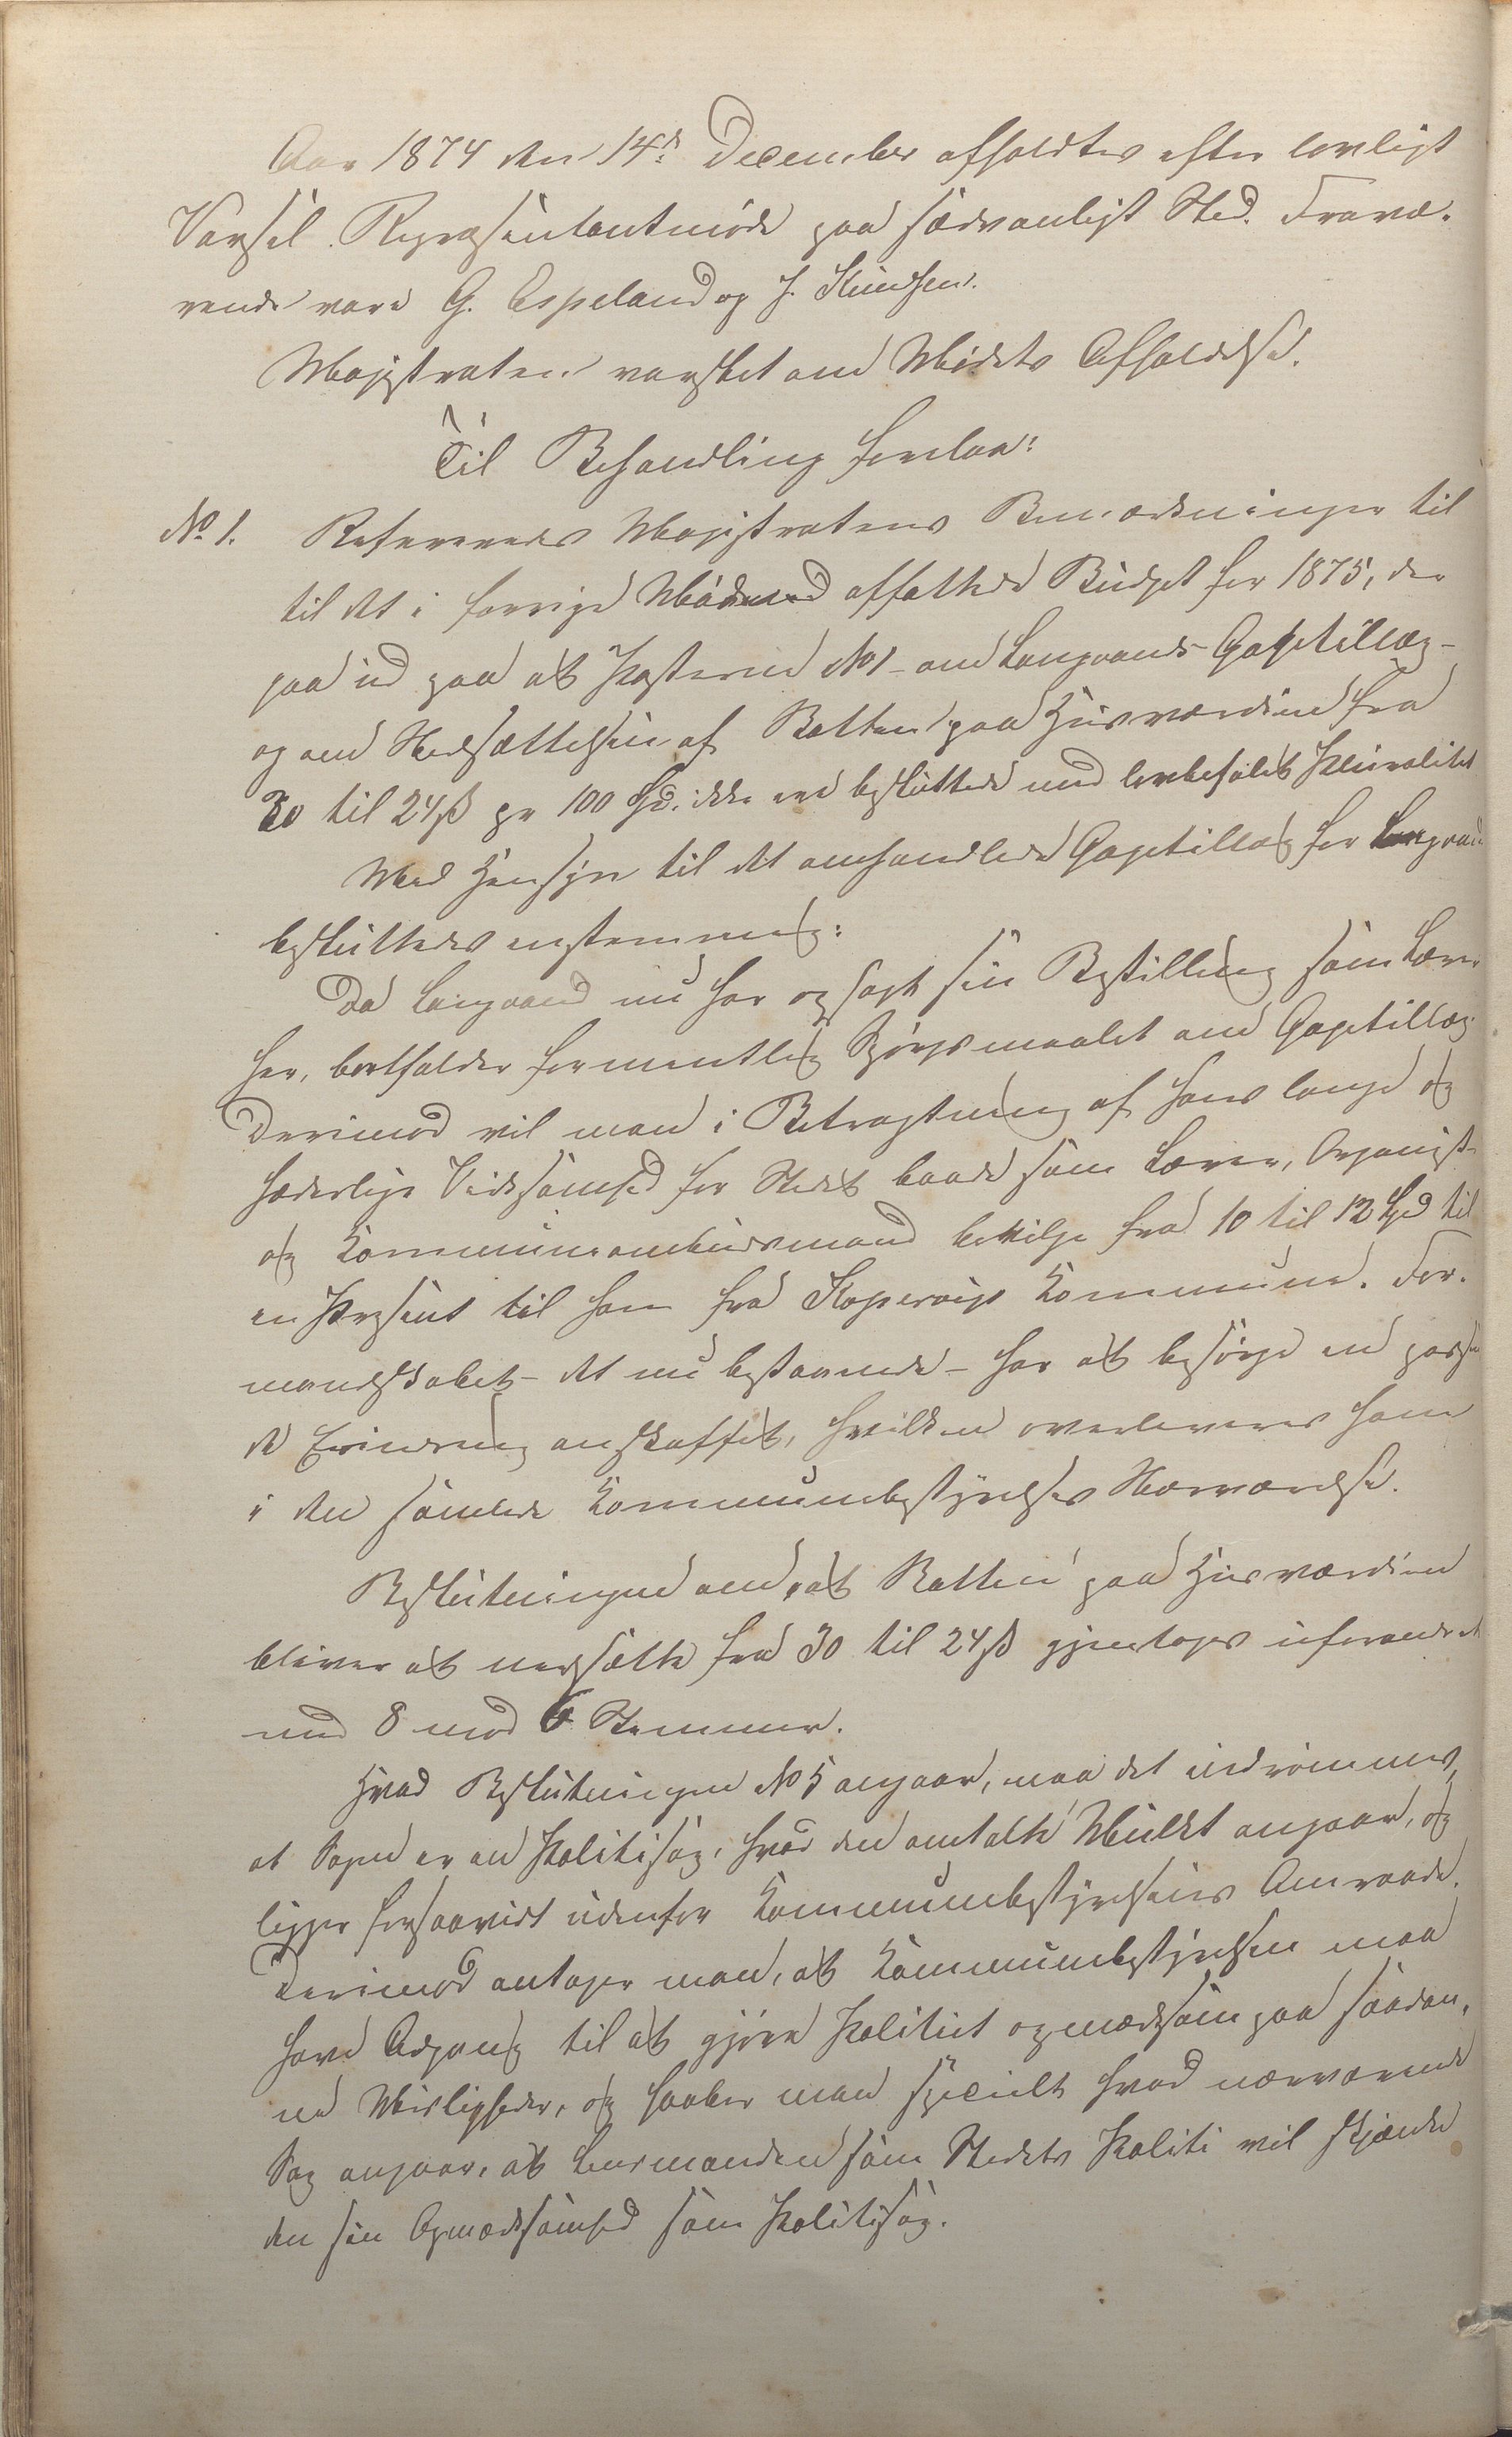 Aar 1874 den 14de December afholdtes efter lovligt
Varsel Repræsentantmøde paa sædvanligt Sted. Fravæ-
rende vare G. Espeland og J. Knudsen.
Magistraten varslet om Mødets Afholdelse.
Til Behandling forelaa:
No 1. Refereredes Magistratens Bemærkninger til
til det i forrige Møde affattede Budget for 1875, der
gaa ud paa at Posterne No 1 om Langaards Gagetillæg
og om Nedsættelsen af Skatten paa Husværdien fra
30 til 24 ß pr 100 Spd. ikke ere besluttede med lovbefalet Pluralitet
Med Hensyn til det omhandlede Gagetillæg for Langaard
besluttedes enstemmig:
Da Langaard nu har opsagt sin Bestilling som Lærer
her, bortfalder formentlig Spørgsmaalet om Gagetillæg.
Derimod vil man i Betragtning af hans lange og
hæderlige Virksomhed for Stedet baade som Lærer, Organist
og Kommuneombudsmand bevilge fra 10 til 12 Spd til
en Present til ham fra Kopervigs Kommune. For-
mandskabet – det nu bestaaende – har at besørge en passen
de Erindring anskaffet, hvilken overleveres ham
i den samlede Kommunebestyrelses Nærværelse.
Beslutningen om, at Skatten paa Husværdien
bliver at nedsætte fra 30 til 24 ß gjentages uforandret
med 8 mod 6 Stemmer.
Hvad Beslutningen No 5 angaar, maa det indrømmes,
at Sagen er en Politisag, hvad den omtalte Mulkt angaar, og
ligger forsaavidt udenfor Kommunebestyrelsens Omraade.
Derimod antager man, at Kommunebestyrelsen maa
have Adgang til at gjøre Politiet opmærksom paa saadan-
ne Misligheder, og haaber man specielt hvad nærværende
Sag angaar, at Lensmanden som Stedets Politi vil skjænke
den sin Opmærksomhed som Politisag.